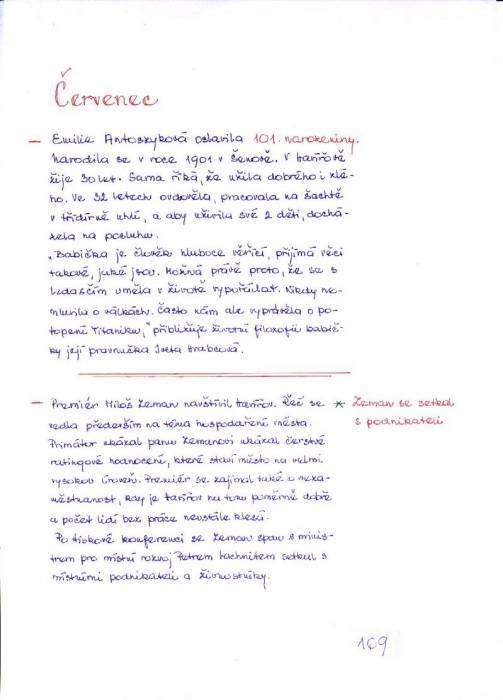 Červenec
— Emilie Antoszyková oslavila 101. narozeniny.
Narodila se v roce 1901 v Šenově. V Havířově
žije 30 let. Sama říká, že užila dobrého i zlé-
ho. Ve 32 letech ovdověla, pracovala na šachtě
v třídírně uhlí, a aby uživila své 2 děti, dochá-
zela na posluhu.
„Babička je člověk hluboce věřící, přijímá věci
takové, jaké jsou. Možná právě proto, že se s
ledasčím uměla v životě vypořádat. Nikdy ne-
mluvila o válkách. Často nám ale vyprávěla o po-
topení Titaniku," přibližuje životní filozofii babič-
ky její pravnučka Iveta Hrabcová.
— Premiér Miloš Zeman navštívil Havířov. Řeč se
* Zeman se setkal
vedla především na téma hospodaření města.
s podnikateli
Primátor ukázal panu Zemanovi ukázal čerstvé
ratingové hodnocení, které staví město na velmi
vysokou úroveň. Premiér se zajímal také o neza-
městnanost, kdy je Havířov na tom poměrně dobře
a počet lidí bez práce neustále klesá.
Po tiskové konferenci se Zeman spolu s minis-
trem pro místní rozvoj Petrem Lachnitem setkal s
místními podnikateli a živnostníky.
169